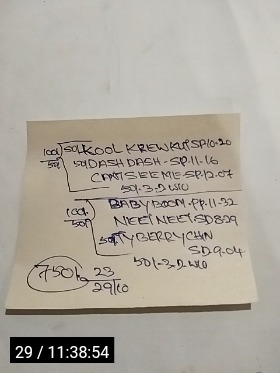 100/ 50/ KOOL KREW KUT SP.10.20
50/ 50/ DASH DASH - SP.11.16
CANT SEE ME-SP.12.07
50/-3.2 W/O
100/. BABY BOOM.PP.11.32
50/ NEET NEET SD 8.29
50/. TYBERRY CHN
SD 9.04
50/-3.2 W/O
750/ 23
29/10
29 / 11:38:54